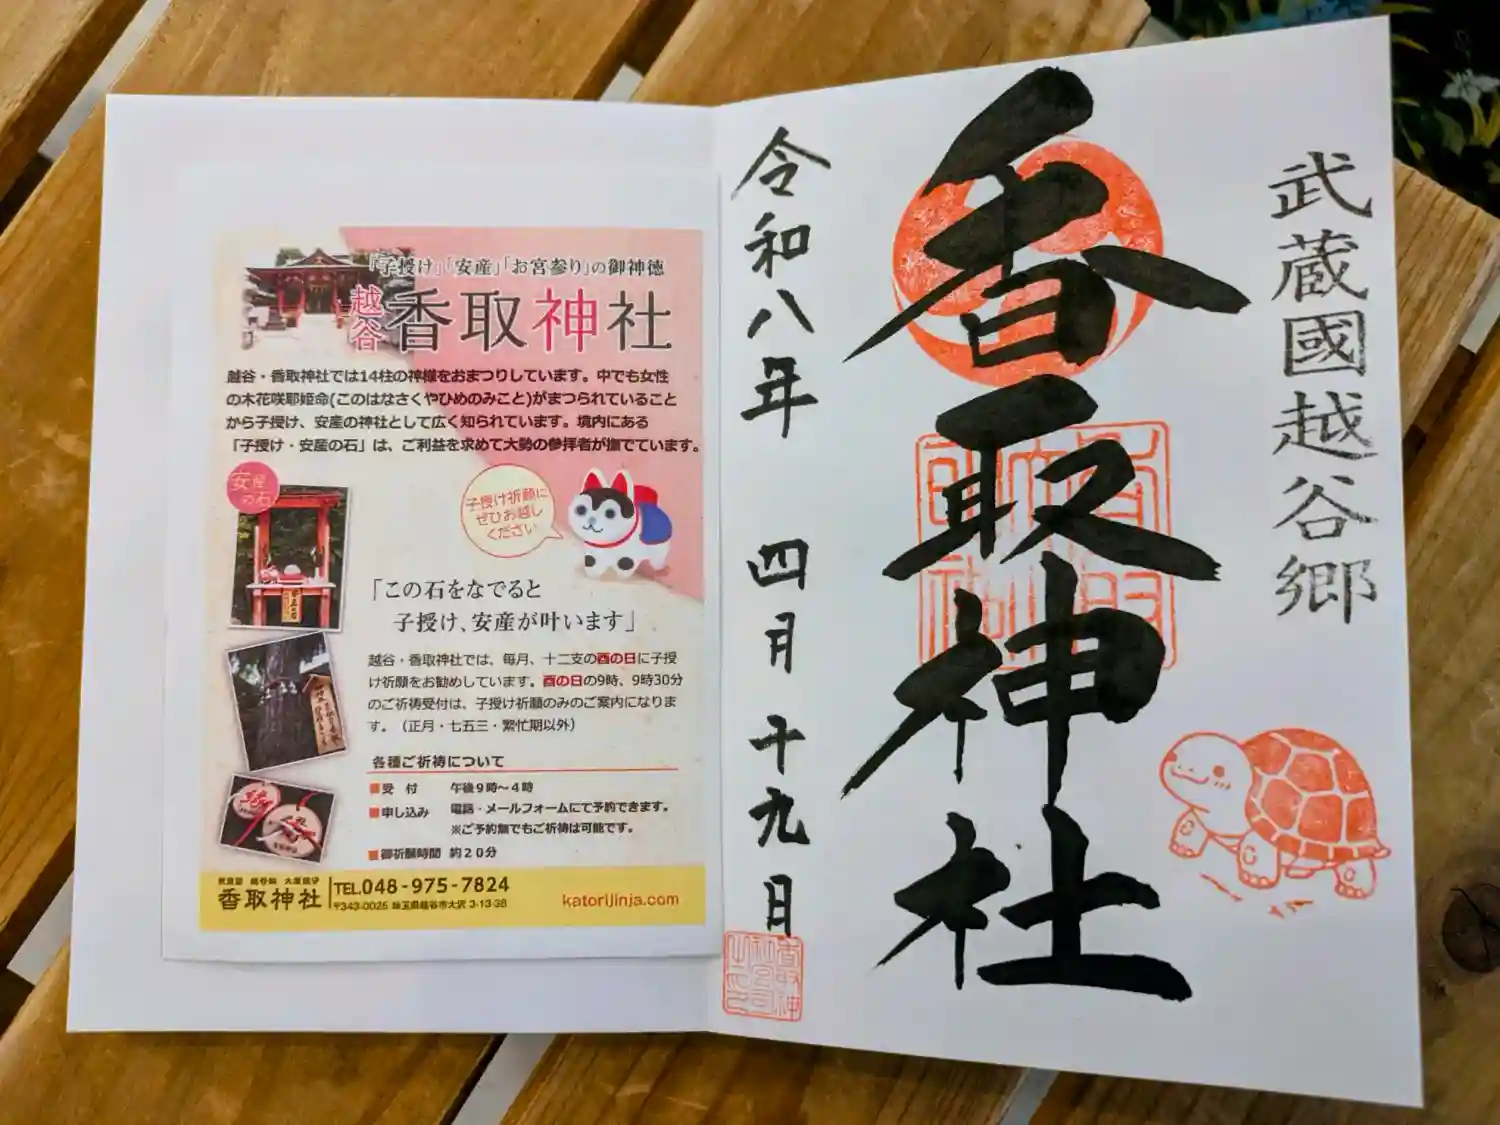 武蔵國越谷郷
香取神社
令和八年 四月 十九日
「子授け」「安産」「お宮参り」の御神徳
越谷 香取神社
越谷・香取神社では14柱の神様をおまつりしています。中でも女性
の木花咲耶姫命(このはなさくやひめのみこと)がまつられていること
から子授け、安産の神社として広く知られています。境内にある
「子授け・安産の石」は、ご利益を求めて大勢の参拝者が撫でています。
安産
の石
子授け祈願に
ぜひお越し
ください
「この石をなでると
子授け、安産が叶います」
越谷・香取神社では、毎月、十二支の酉の日に子授
け祈願をお勧めしています。酉の日の9時、9時30分
のご祈祷受付は、子授け祈願のみのご案内になりま
す。（正月・七五三・繁忙期以外）
各種ご祈祷について
■受 付 午後9時〜4時
■申し込み 電話・メールフォームにて予約できます。
※ご予約無でもご祈祷は可能です。
■御祈願時間 約20分
香取神社
TEL.048-975-7824
〒343-0025 埼玉県越谷市大沢 3-13-38
katorijinja.com